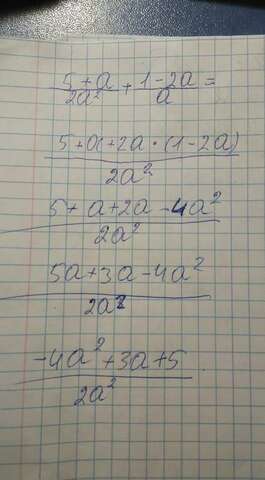 (5+a)/(2a²) + (1-2a)/a =
(5+a+2a·(1-2a))/(2a²)
(5+a+2a-4a²)/(2a²)
(5a+3a-4a²)/(2a²)
(-4a²+3a+5)/(2a²)